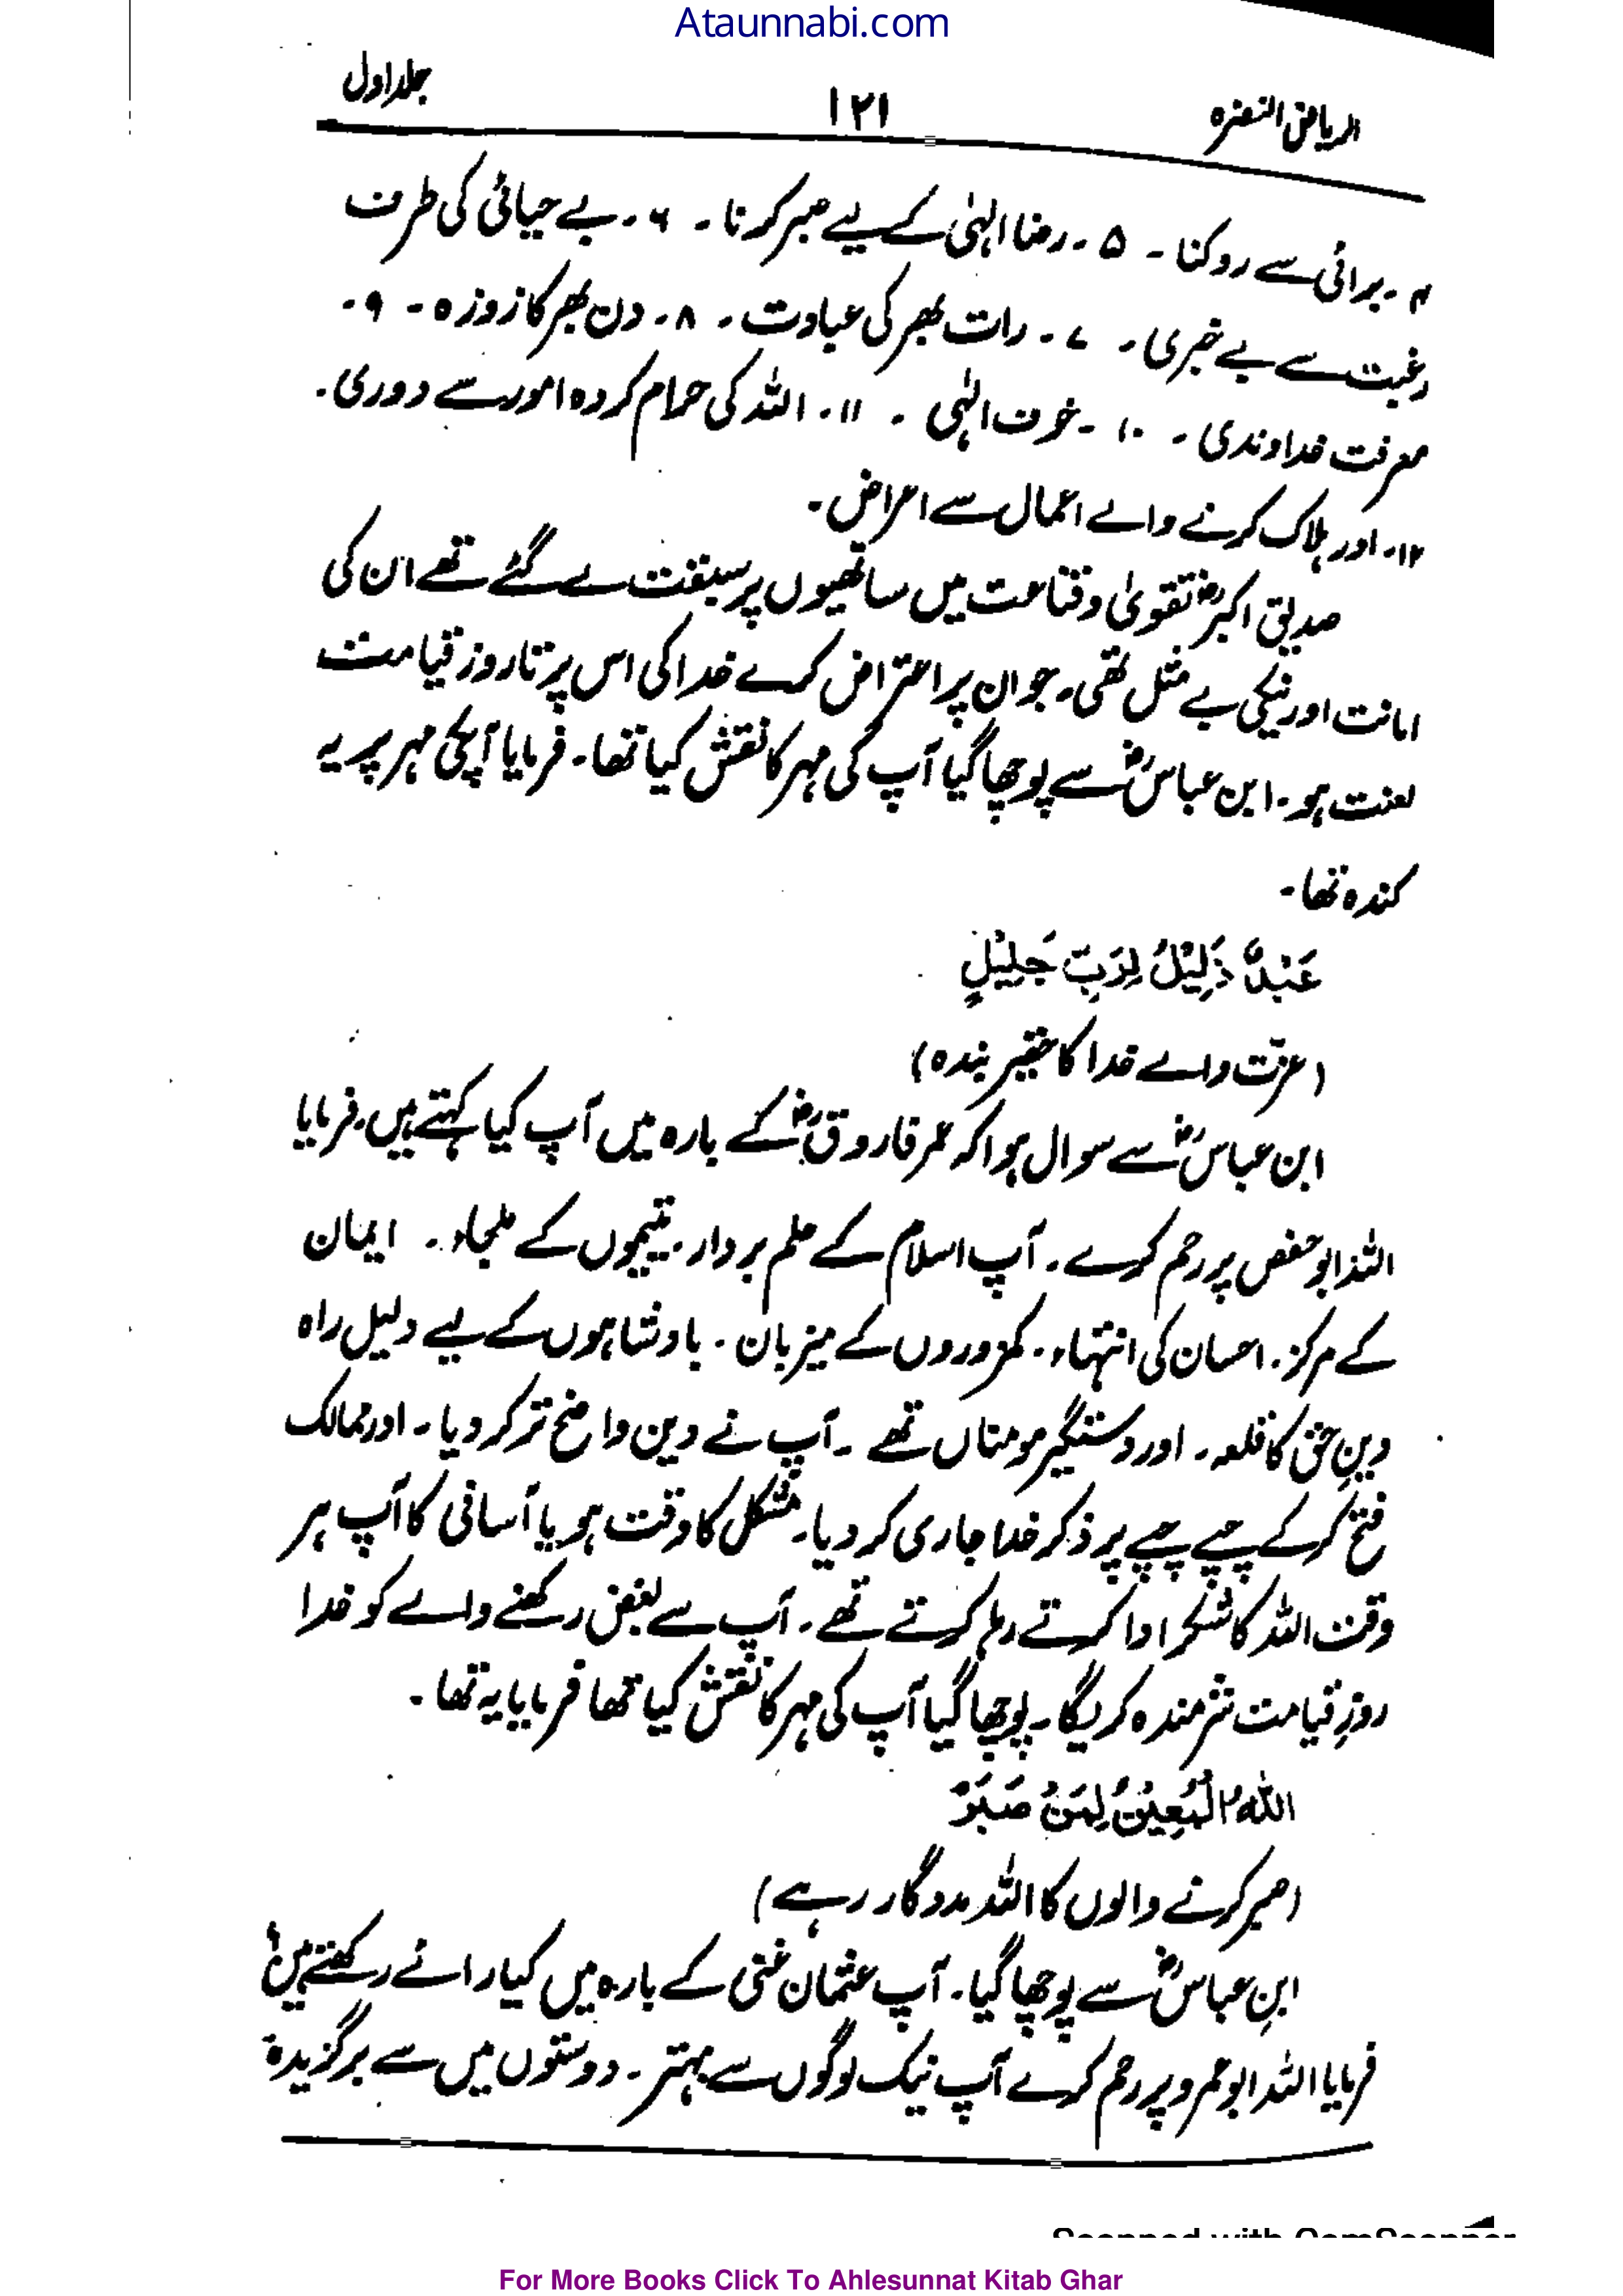 Ataunnabi.com
الریاض النضرہ ۱۲۱ جلد اول
۴ ۔ برائی سے روکنا ۔ ۵ ۔ رضا الہٰی کے لیے صبر کرنا ۔ ۶ ۔ بے حیائی کی طرف
رغبت سے بے خبری ۔ ۷ ۔ رات بھر کی عبادت ۔ ۸ ۔ دن بھر کا روزہ ۔ ۹ ۔
معرفت خداوندی ۔ ۱۰ ۔ خوف الہٰی ۔ ۱۱ ۔ اللہ کی حرام کردہ امور سے دوری ۔
۱۲ ۔ اور ہلاک کرنے والے اعمال سے اعراض ۔
صدیق اکبرؓ تقویٰ و قناعت میں ساتھیوں پر سبقت لے گئے تھے ان کی
امانت اور نیکی بے مثل تھی ۔ جو ان پر اعتراض کرے خدا کی اس پر تا روز قیامت
لعنت ہو ۔ ابن عباسؓ سے پوچھا گیا آپ کی مہر کا نقش کیا تھا ۔ فرمایا آپکی مہر پر یہ
کندہ تھا ۔
عَبْدٌ ذَلِيْلٌ لِرَبٍّ جَلِيْلٍ
(عزّت والے خدا کا حقیر بندہ)
ابن عباسؓ سے سوال ہوا کہ عمر فاروقؓ کے بارہ میں آپ کیا کہتے ہیں ۔ فرمایا
اللہ ابو حفص پر رحم کرے ۔ آپ اسلام کے علم بردار ۔ یتیموں کے ملجاء ۔ ایمان
کے مرکز ۔ احسان کی انتہاء ۔ کمزوروں کے میزبان ۔ بادشاہوں کے لیے دلیل راہ
دینِ حق کا قلعہ ۔ اور دستگیر مومناں تھے ۔ آپ نے دین واضح تر کر دیا ۔ اور ممالک
فتح کر کے چپے چپے پر ذکر خدا جاری کر دیا ۔ مشکل کا وقت ہو یا آسانی کا آپ ہر
وقت اللہ کا شکر ادا کرتے رہا کرتے تھے ۔ آپ سے بغض رکھنے والے کو خدا
روزِ قیامت شرمندہ کریگا ۔ پوچھا گیا آپ کی مہر کا نقش کیا تھا فرمایا یہ تھا ۔
اللّٰهُ الْمُعِيْنُ لِمَنْ صَبَرَ
(صبر کرنے والوں کا اللہ مددگار رہے)
ابنِ عباسؓ سے پوچھا گیا ۔ آپ عثمان غنی کے بارہ میں کیا رائے رکھتے ہیں؟
فرمایا اللہ ابو عمرو پر رحم کرے آپ نیک لوگوں سے بہتر ۔ دوستوں میں سے برگزیدہ
Scanned with CamScanner
For More Books Click To Ahlesunnat Kitab Ghar